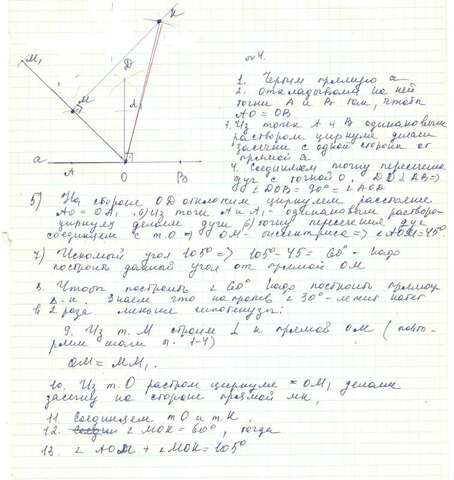 M₁
K
D
M
A₁
a
A
O
B
№ 4.
1. Чертим прямую a
2. Откладываем на ней
точки A и B так, чтобы
AO = OB
3. Из точек A и B одинаковым
раствором циркуля делаем
засечки с одной стороны от
прямой a
4. Соединяем точку пересечения
дуг с точкой O. DO ⊥ AB =>
∠DOB = 90° = ∠AOD
5) На стороне OD отложим циркулем расстояние
AO = OA₁. 6) Из точки A и A₁ - одинаковым раствором
циркуля делаем дуги, в) точку пересечения дуг
соединяем с т.O => OM - биссектриса => ∠AOM=45°
7) Искомый угол 105° => 105° - 45 = 60° - надо
построить данный угол от прямой OM
8. Чтобы построить ∠60° надо построить прямоуг.
Δ-к. Знаем что напротив ∠30° - лежит катет
в 2 раза меньше гипотенузы:
9. Из т. M строим ⊥ к прямой OM (повто-
ряем шаги п. 1-4)
OM = MM₁.
10. Из т.O раствор циркуля = OM₁ делаем
засечку на стороне прямой MK,
11. Соединяем т O и т. K.
12. ∠MOK = 60°, тогда
13. ∠AOM + ∠MOK = 105°